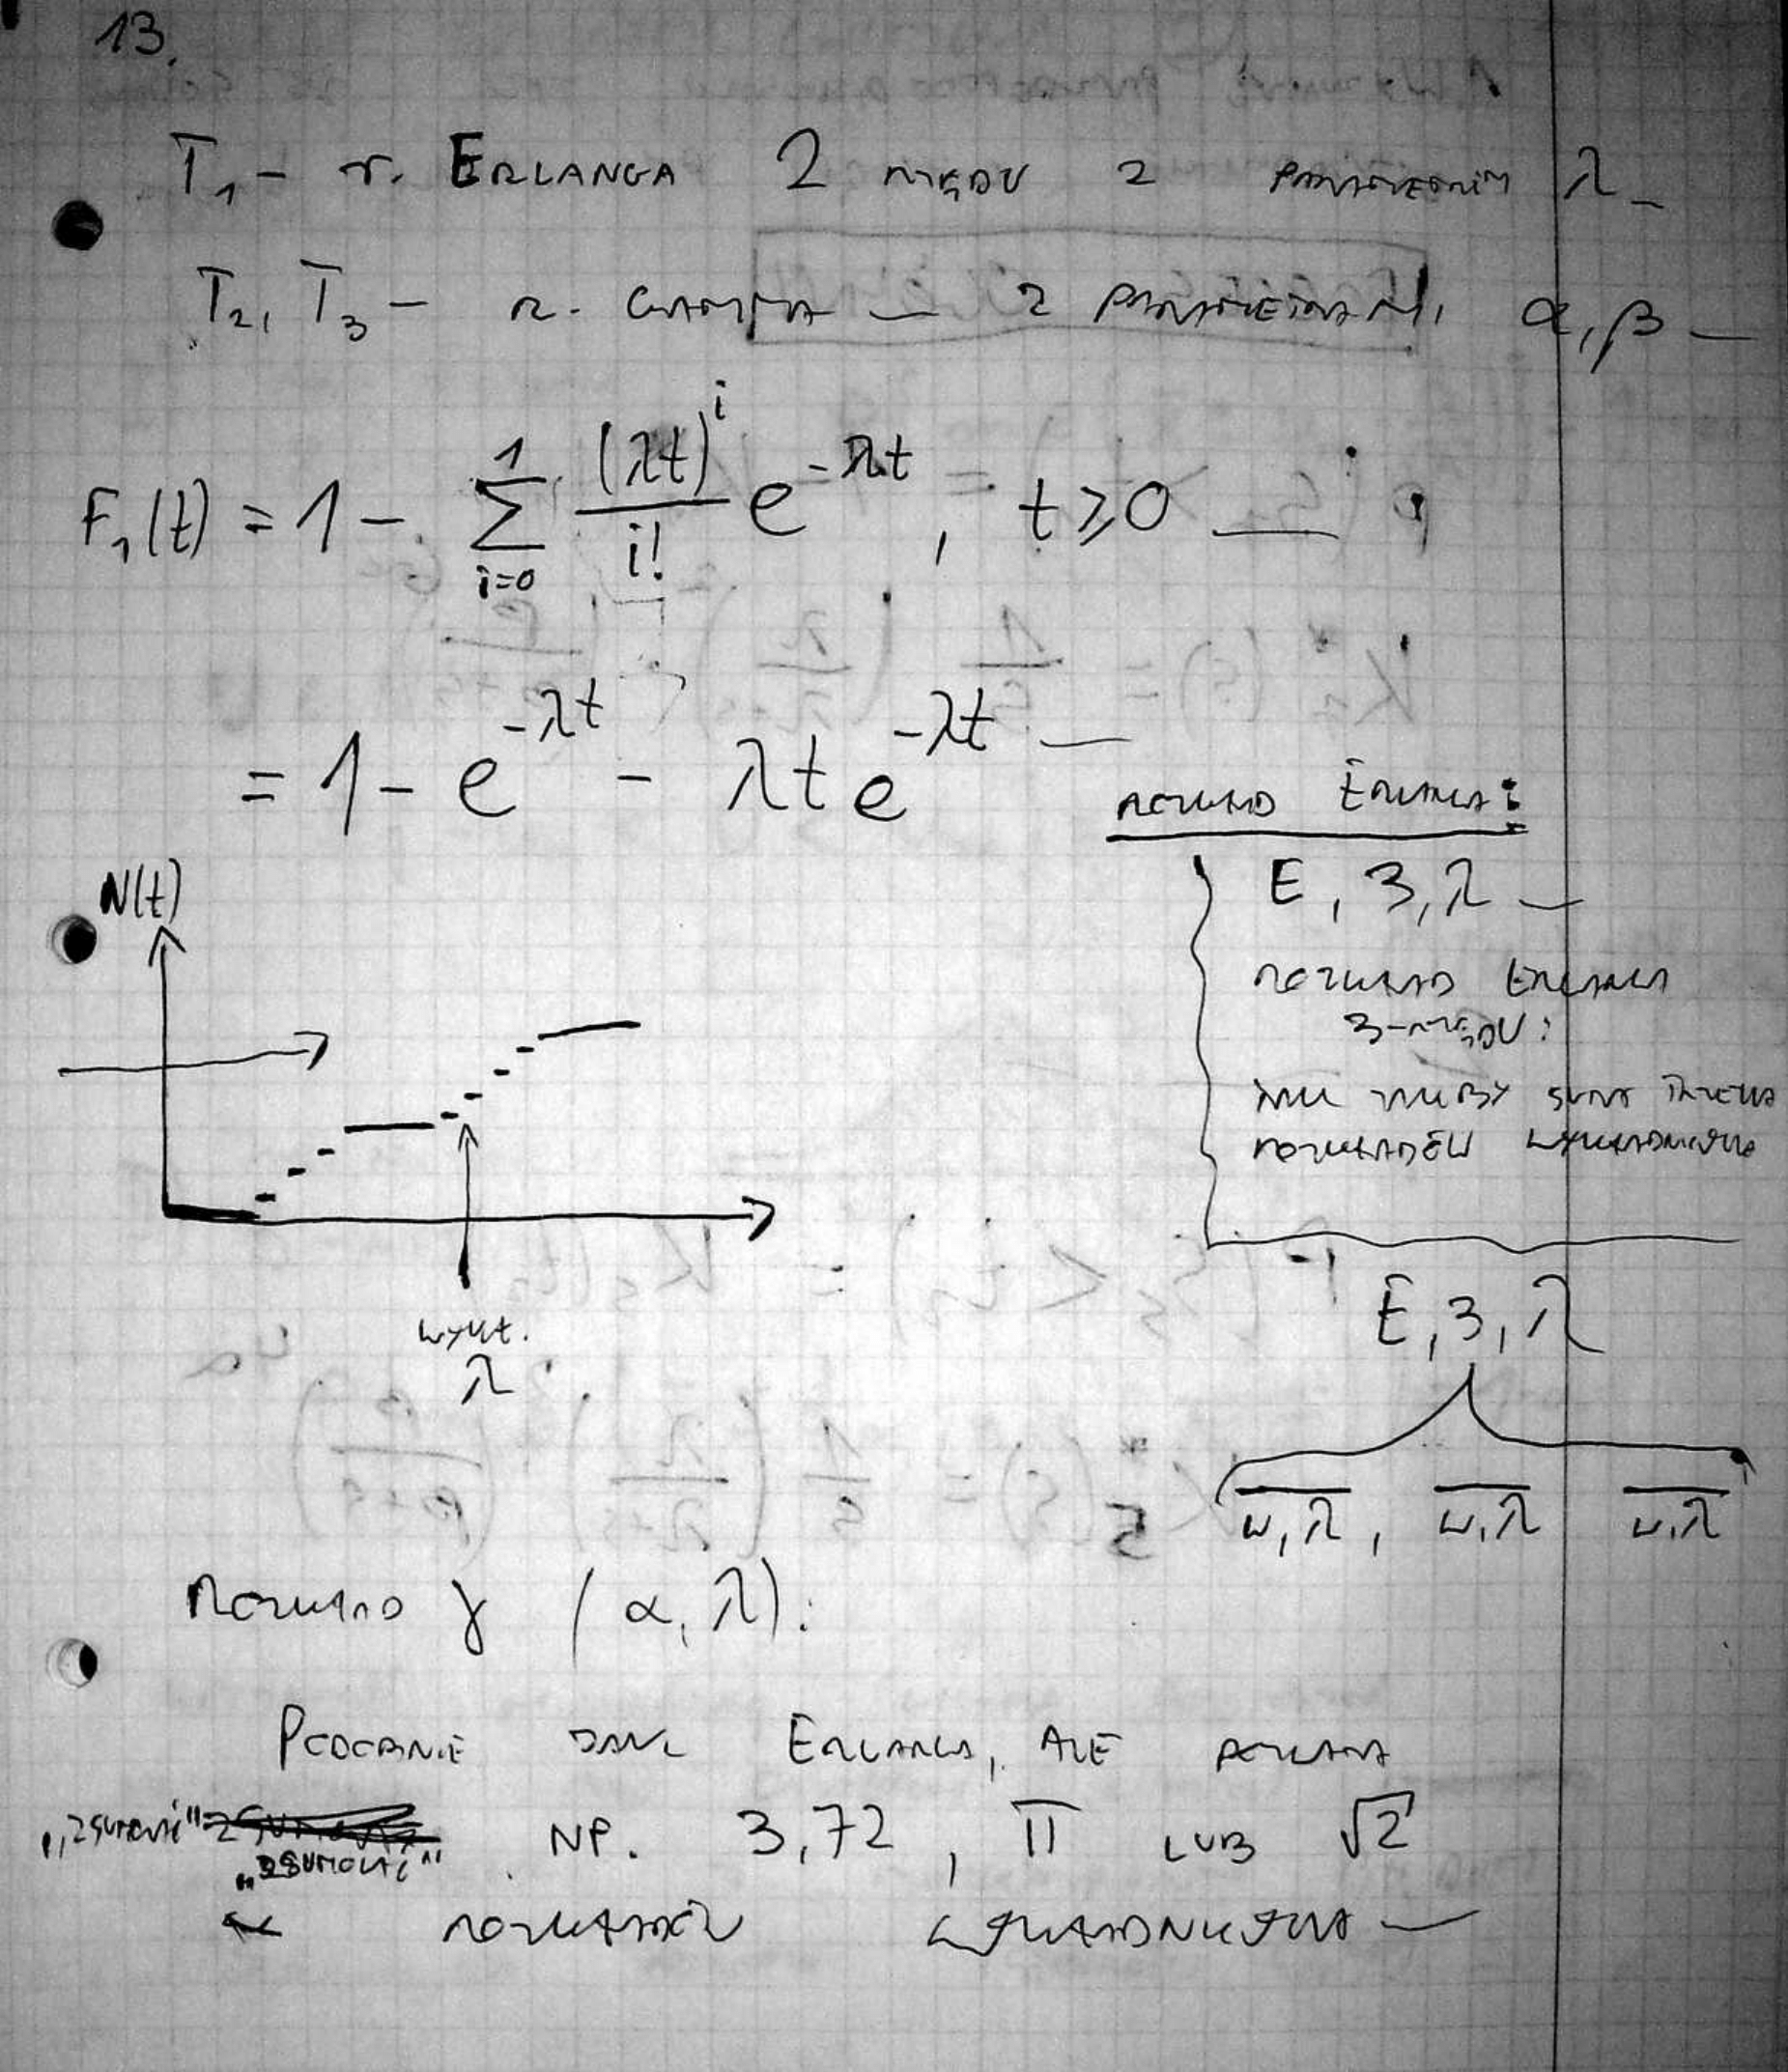 13.
T₁ - r. ERLANGA 2 RZĘDU Z PARAMETREM λ
T₂, T₃ - r. GAMMA Z PARAMETRAMI α, β
F₁(t) = 1 - \sum_{i=0}^{1} \frac{(λt)^i}{i!} e^{-λt}, t ≥ 0
= 1 - e^{-λt} - λt e^{-λt}
ROZKŁAD ERLANGA:
E, 3, λ
ROZKŁAD ERLANGA
3-RZĘDU:
SUMA TRZECH
ROZKŁADÓW WYKŁADNICZYCH
N(t)
WYKŁ.
λ
E, 3, λ
W, λ, W, λ W, λ
ROZKŁAD γ (α, λ):
PODOBNIE JAK ERLANGA, ALE POZWALA
„ZSUMOWAĆ" „ZSUMOWAĆ" NP. 3,72, Π LUB √2
ROZKŁADÓW WYKŁADNICZYCH